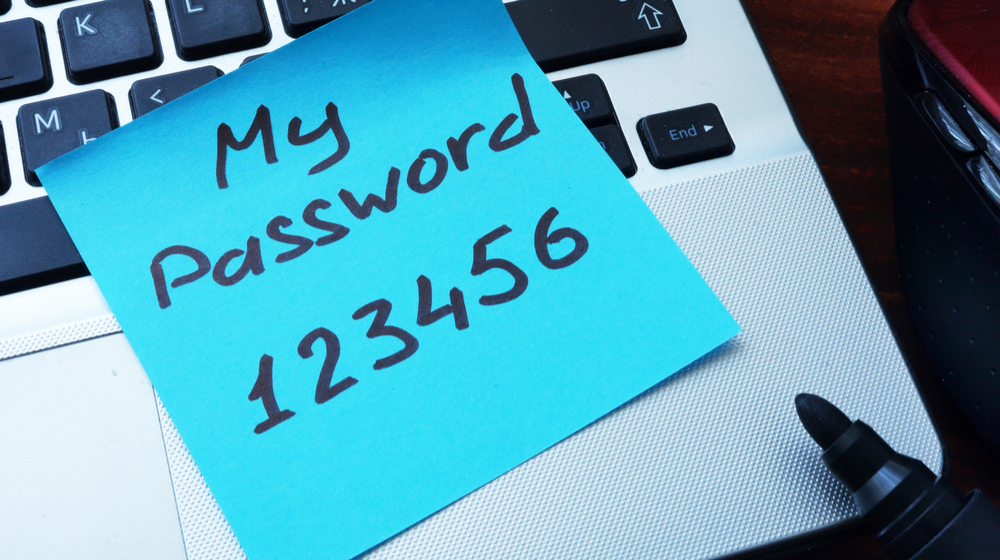 K L
M Ь <
Up
End
My
password
123456